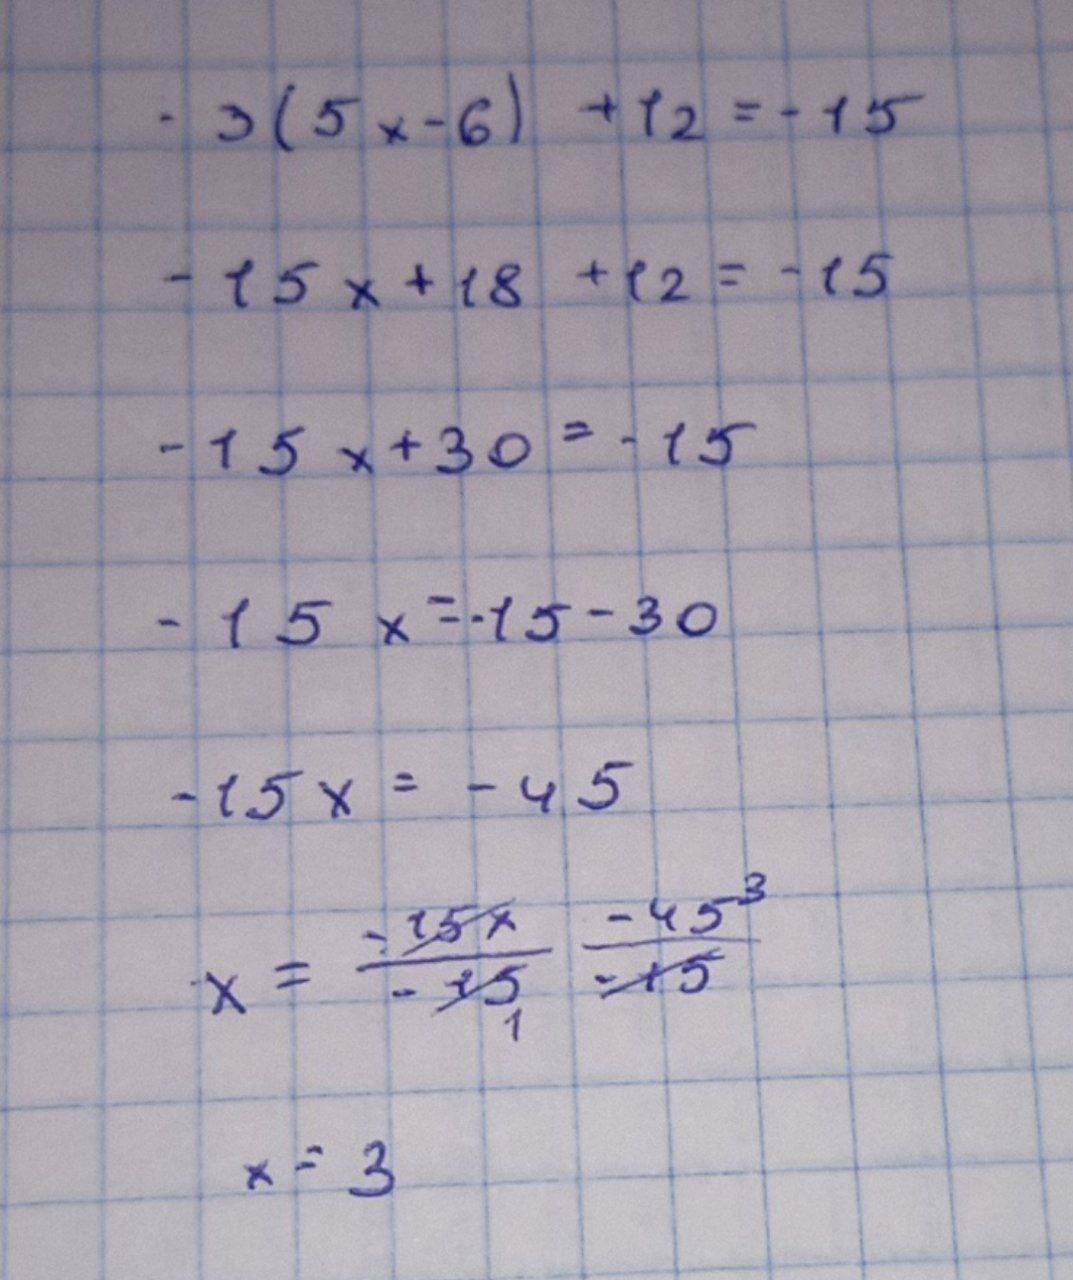 - 3(5x-6) +12=-15
-15x+18 +12=-15
-15x+30=-15
-15x=-15-30
-15x=-45
x = -15x/-15 1 -45/-15 3
x=3